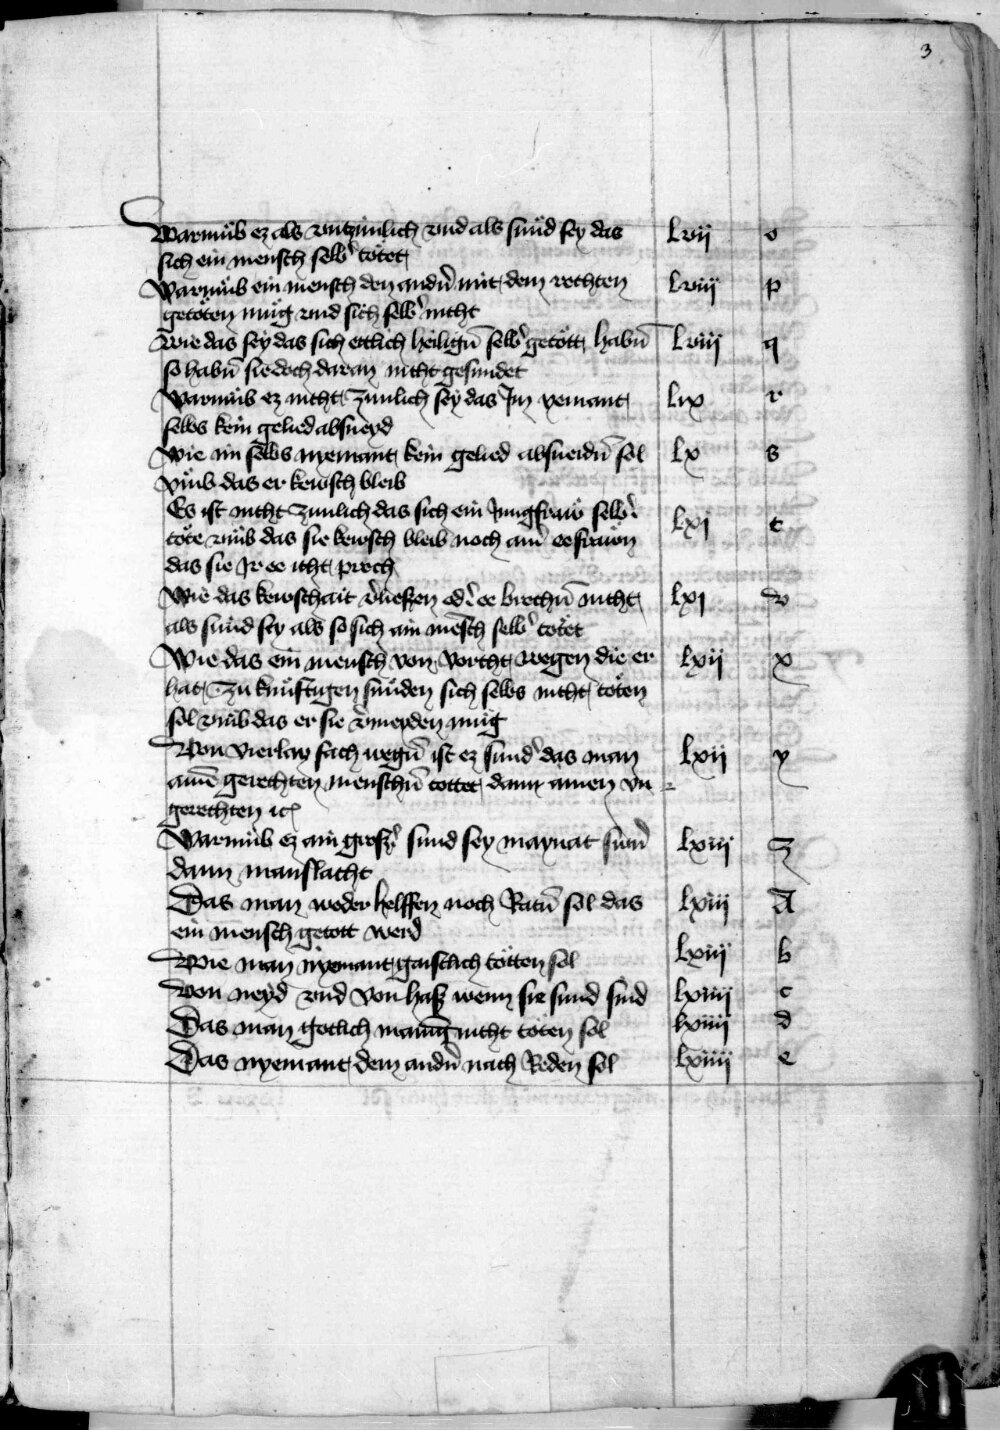 3
Warumb ez als vnzimlich vnd als sünd sey das Lvij o
sich ein mensch selbˢ tötet
Warumb ein mensch den andˢn mit dem rechten Lviij p
getöten müg vnd sich selbˢ nicht
Wie das sey das sich ettlich heiligen̄ selbˢ getött habn̄ Lviij q
so habn̄ sie doch daran nicht gesundet
Warumb ez nicht zimlich sey das Im yemant Lix r
selbs kein gelied absneyd
Wie im selbs nyemant kein gelied absneidn̄ sol Lx s
vmb das er kewsch bleib
Es ist nicht zimlich das sich ein Jungfraw selbˢ Lxj t
töte vmb das sie kewsch bleib noch ain eefrawen
das sie Ir ee icht prech
Wie das kewschait vˢliesen odˢ ee brechn̄ nicht Lxj v
als sünd sey als so sich ain mēsch selbˢ tötet
Wie das ein mensch von vorcht wegen die er Lxij x
hat zu künftigen sünden sich selbs nicht töten
sol vmb das er sie vˢmeyden müg
Von vierlay sach wegn̄ ist ez sundˢ das man Lxij y
ainē gerechten menschn̄ tottet dann ainen vn
gerechten ꝛc
Warumb ez ain grosˢ sund sey maynat swn̄ Lxiij z
dann manslacht
Das man weder helffen noch Ratn̄ sol das Lxiij A
ein mensch getott werd
Wie man nyemant gaistlich tötten sol Lxiij b
Von neyd vnd von hasz wenn sie sund sind Lxiiij c
Das man gotlich nicht töten sol Lxiiij d
Das nyemant dem andˢn nach Reden sol Lxiiij e